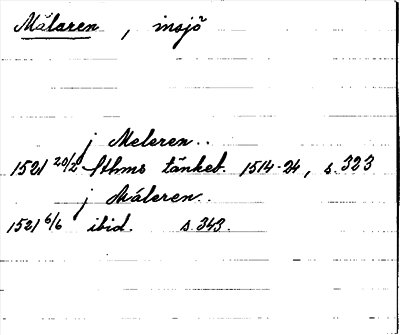 Mälaren, insjö
j Meleren..
1521 20/2 Sthms tänkeb. 1514-24, s. 323
j Mäleren..
1521 6/6 ibid. s. 343.